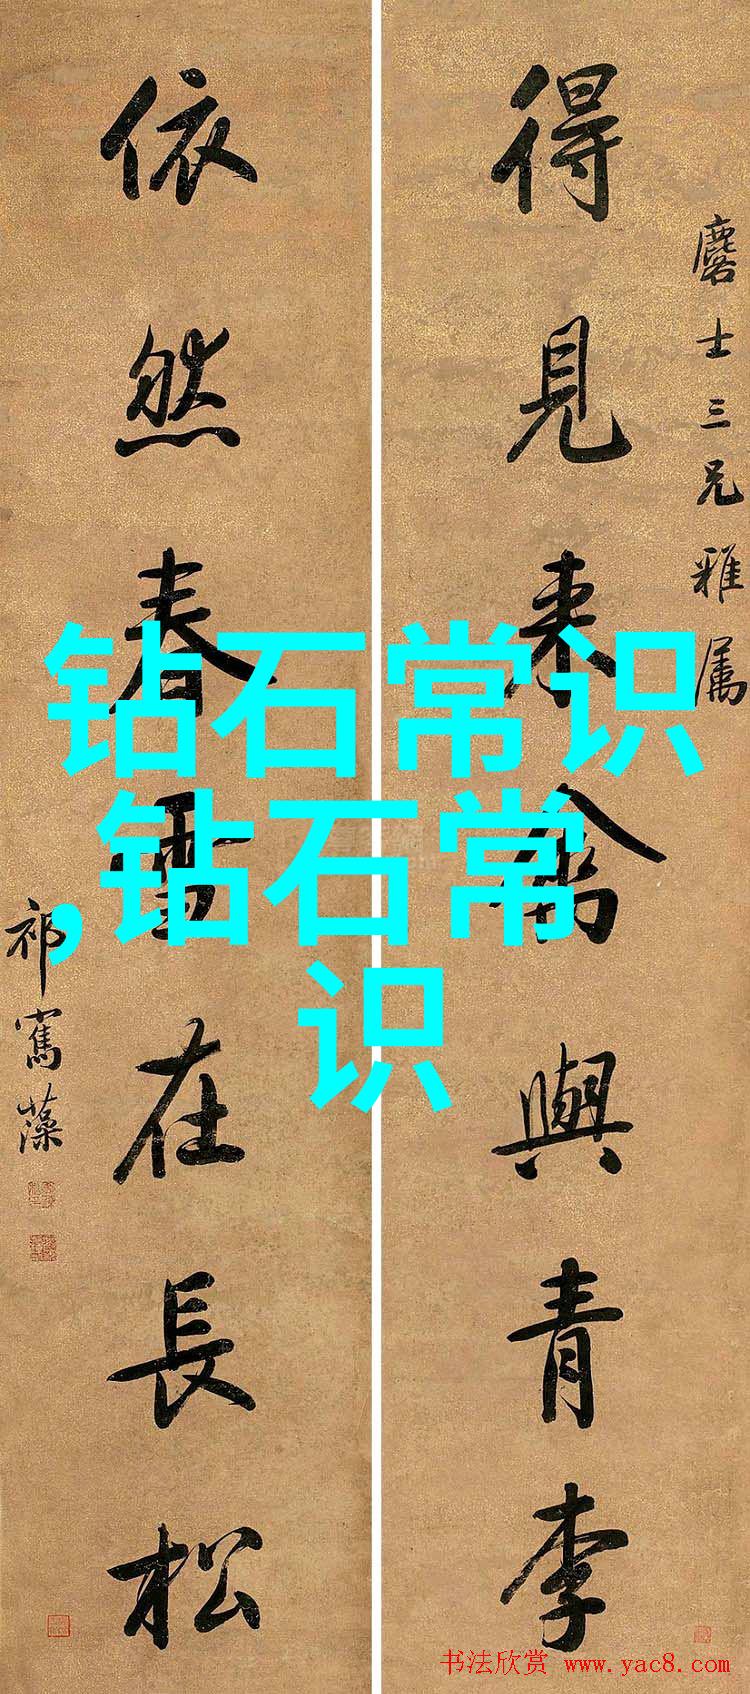 麐士三兄雅属
得見来禽與青李
依然春雪在長松
祁寯藻
钻石常识
,钻石常
识
书法欣赏 www.yac8.com